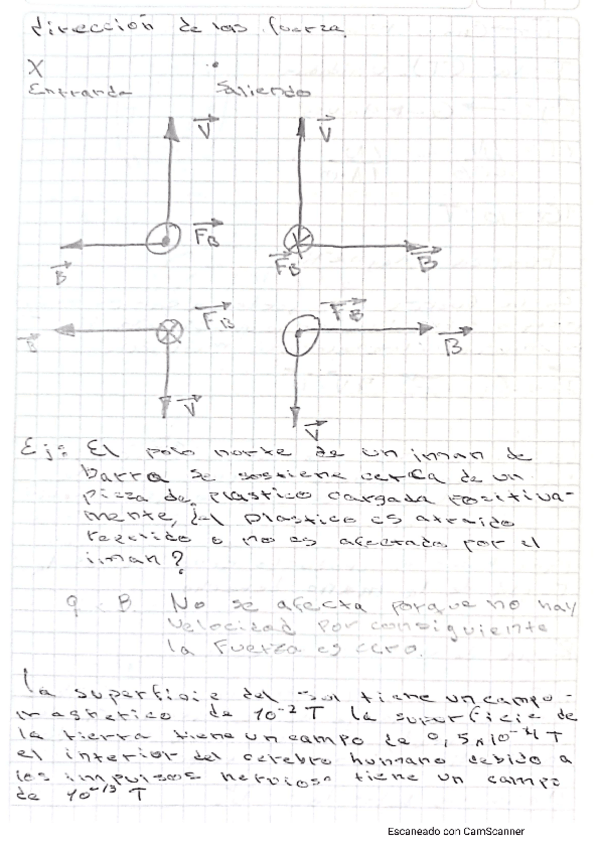 dirección de las fuerza
X
Entrando Saliendo
V V
B FB FB B
B FB FB B
V V
Ej: El polo norte de un iman de
barra se sostiene cerca de un
pieza de plastico cargada positiva-
mente, ¿el plastico es atraido
repelido o no es afectada por el
iman?
q B No se afecta porque no hay
velocidad por consiguiente
la Fuerza es cero.
la superficie del sol tiene un campo
magnetico de 10⁻² T la superficie de
la tierra tiene un campo de 0,5x10⁻⁴ T
el interior del cerebro humano debido a
los impulsos nerviosos tiene un campo
de 10⁻¹³ T
Escaneado con CamScanner